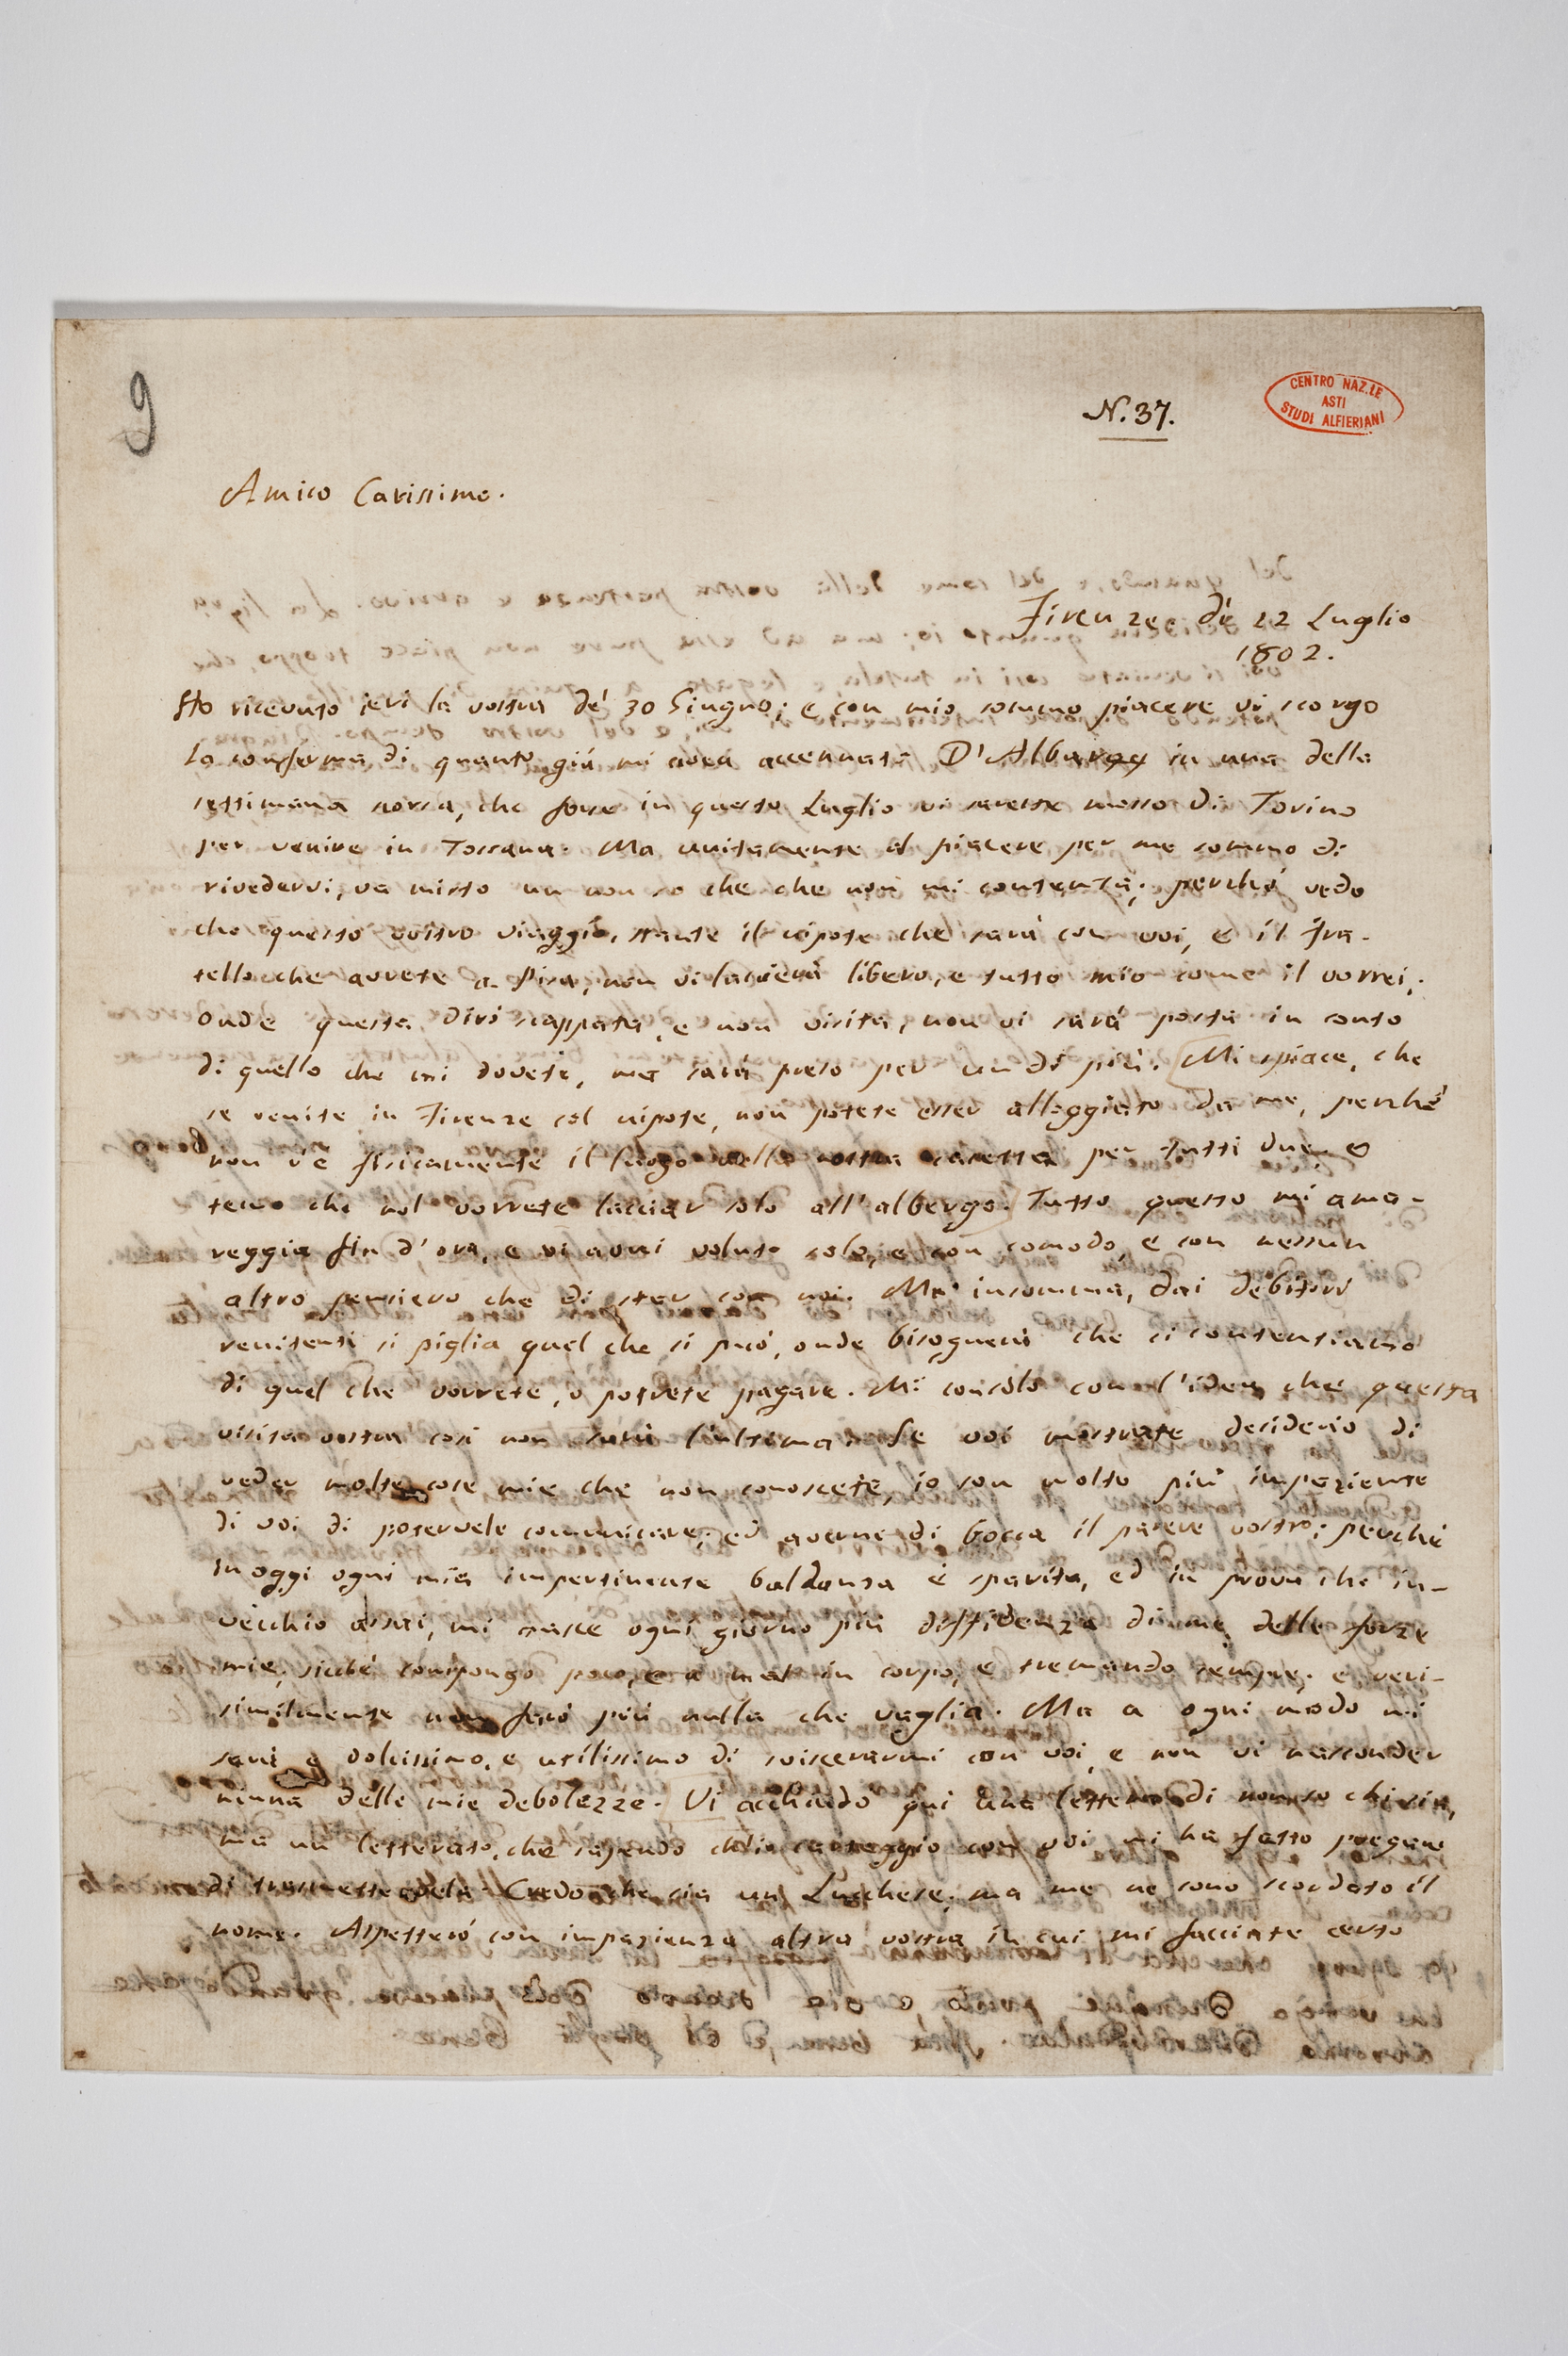 9
N. 37.
CENTRO NAZ.LE
ASTI
STUDI ALFIERIANI
Amico Carissimo.
Firenze dè 22 Luglio
1802.
Ho ricevuto ieri la vostra dè 30 Giugno; e con mio sommo piacere vi scorgo
la conferma di quanto già mi avea accennato D'Albarey in una della
settimana scorsa, che forse in questo Luglio vi sareste mosso di Torino
per venire in Toscana. Ma unitamente al piacere per me sommo di
rivedervi, va misto un non so che che non mi contenta; perchè vedo
che questo vostro viaggio, stante il nipote che sarà con voi, e il Fra-
tello che avrete a Pisa, non vi lascierà libero, e tutto mio come il vorrei;
onde questa dirò scappata, e non visita, non vi sarà posta in conto
di quello che mi dovete, ma sarà preso per un di più. Mi spiace, che
se venite in Firenze col nipote, non potete esser alloggiato da me, perchè
non v'è fisicamente il luogo nella vostra casetta per tutti due, e
temo che nol vorrete lasciar solo all'albergo. Tutto questo mi ama-
reggia fin d'ora, e vi avrei voluto solo, e con comodo, e con nessun
altro pensiero che di star con noi. Ma insomma, dai debitori
renitenti si piglia quel che si può, onde bisognerà che ci contentiamo
di quel che vorrete, o potrete pagare. Mi consolo con l'idea che questa
visita vostra così non sarà l'ultima. Se voi mostrate desiderio di
veder molte cose mie che non conoscete, io son molto più impaziente
di voi di potervele comunicare, ed averne di bocca il parere vostro; perchè
in oggi ogni mia impertinente baldanza è sparita, ed in prova che in-
vecchio assai, mi nasce ogni giorno più diffidenza di me, delle forze
mie; sicchè compongo poco, e a mal in corpo, e tremando sempre; e veri-
similmente non farò più nulla che vaglia. Ma a ogni modo mi
sarà e dolcissimo, e utilissimo di sviscerarmi con voi, e non vi nasconder
niuna delle mie debolezze. Vi acchiudo qui una lettera di non so chi sia,
ma un letterato, che sapendo ch'io carteggio con voi mi ha fatto pregare
di trasmettervela. Credo che sia un Lucchese; ma me ne sono scordato il
nome. Aspetterò con impazienza altra vostra in cui mi facciate certo